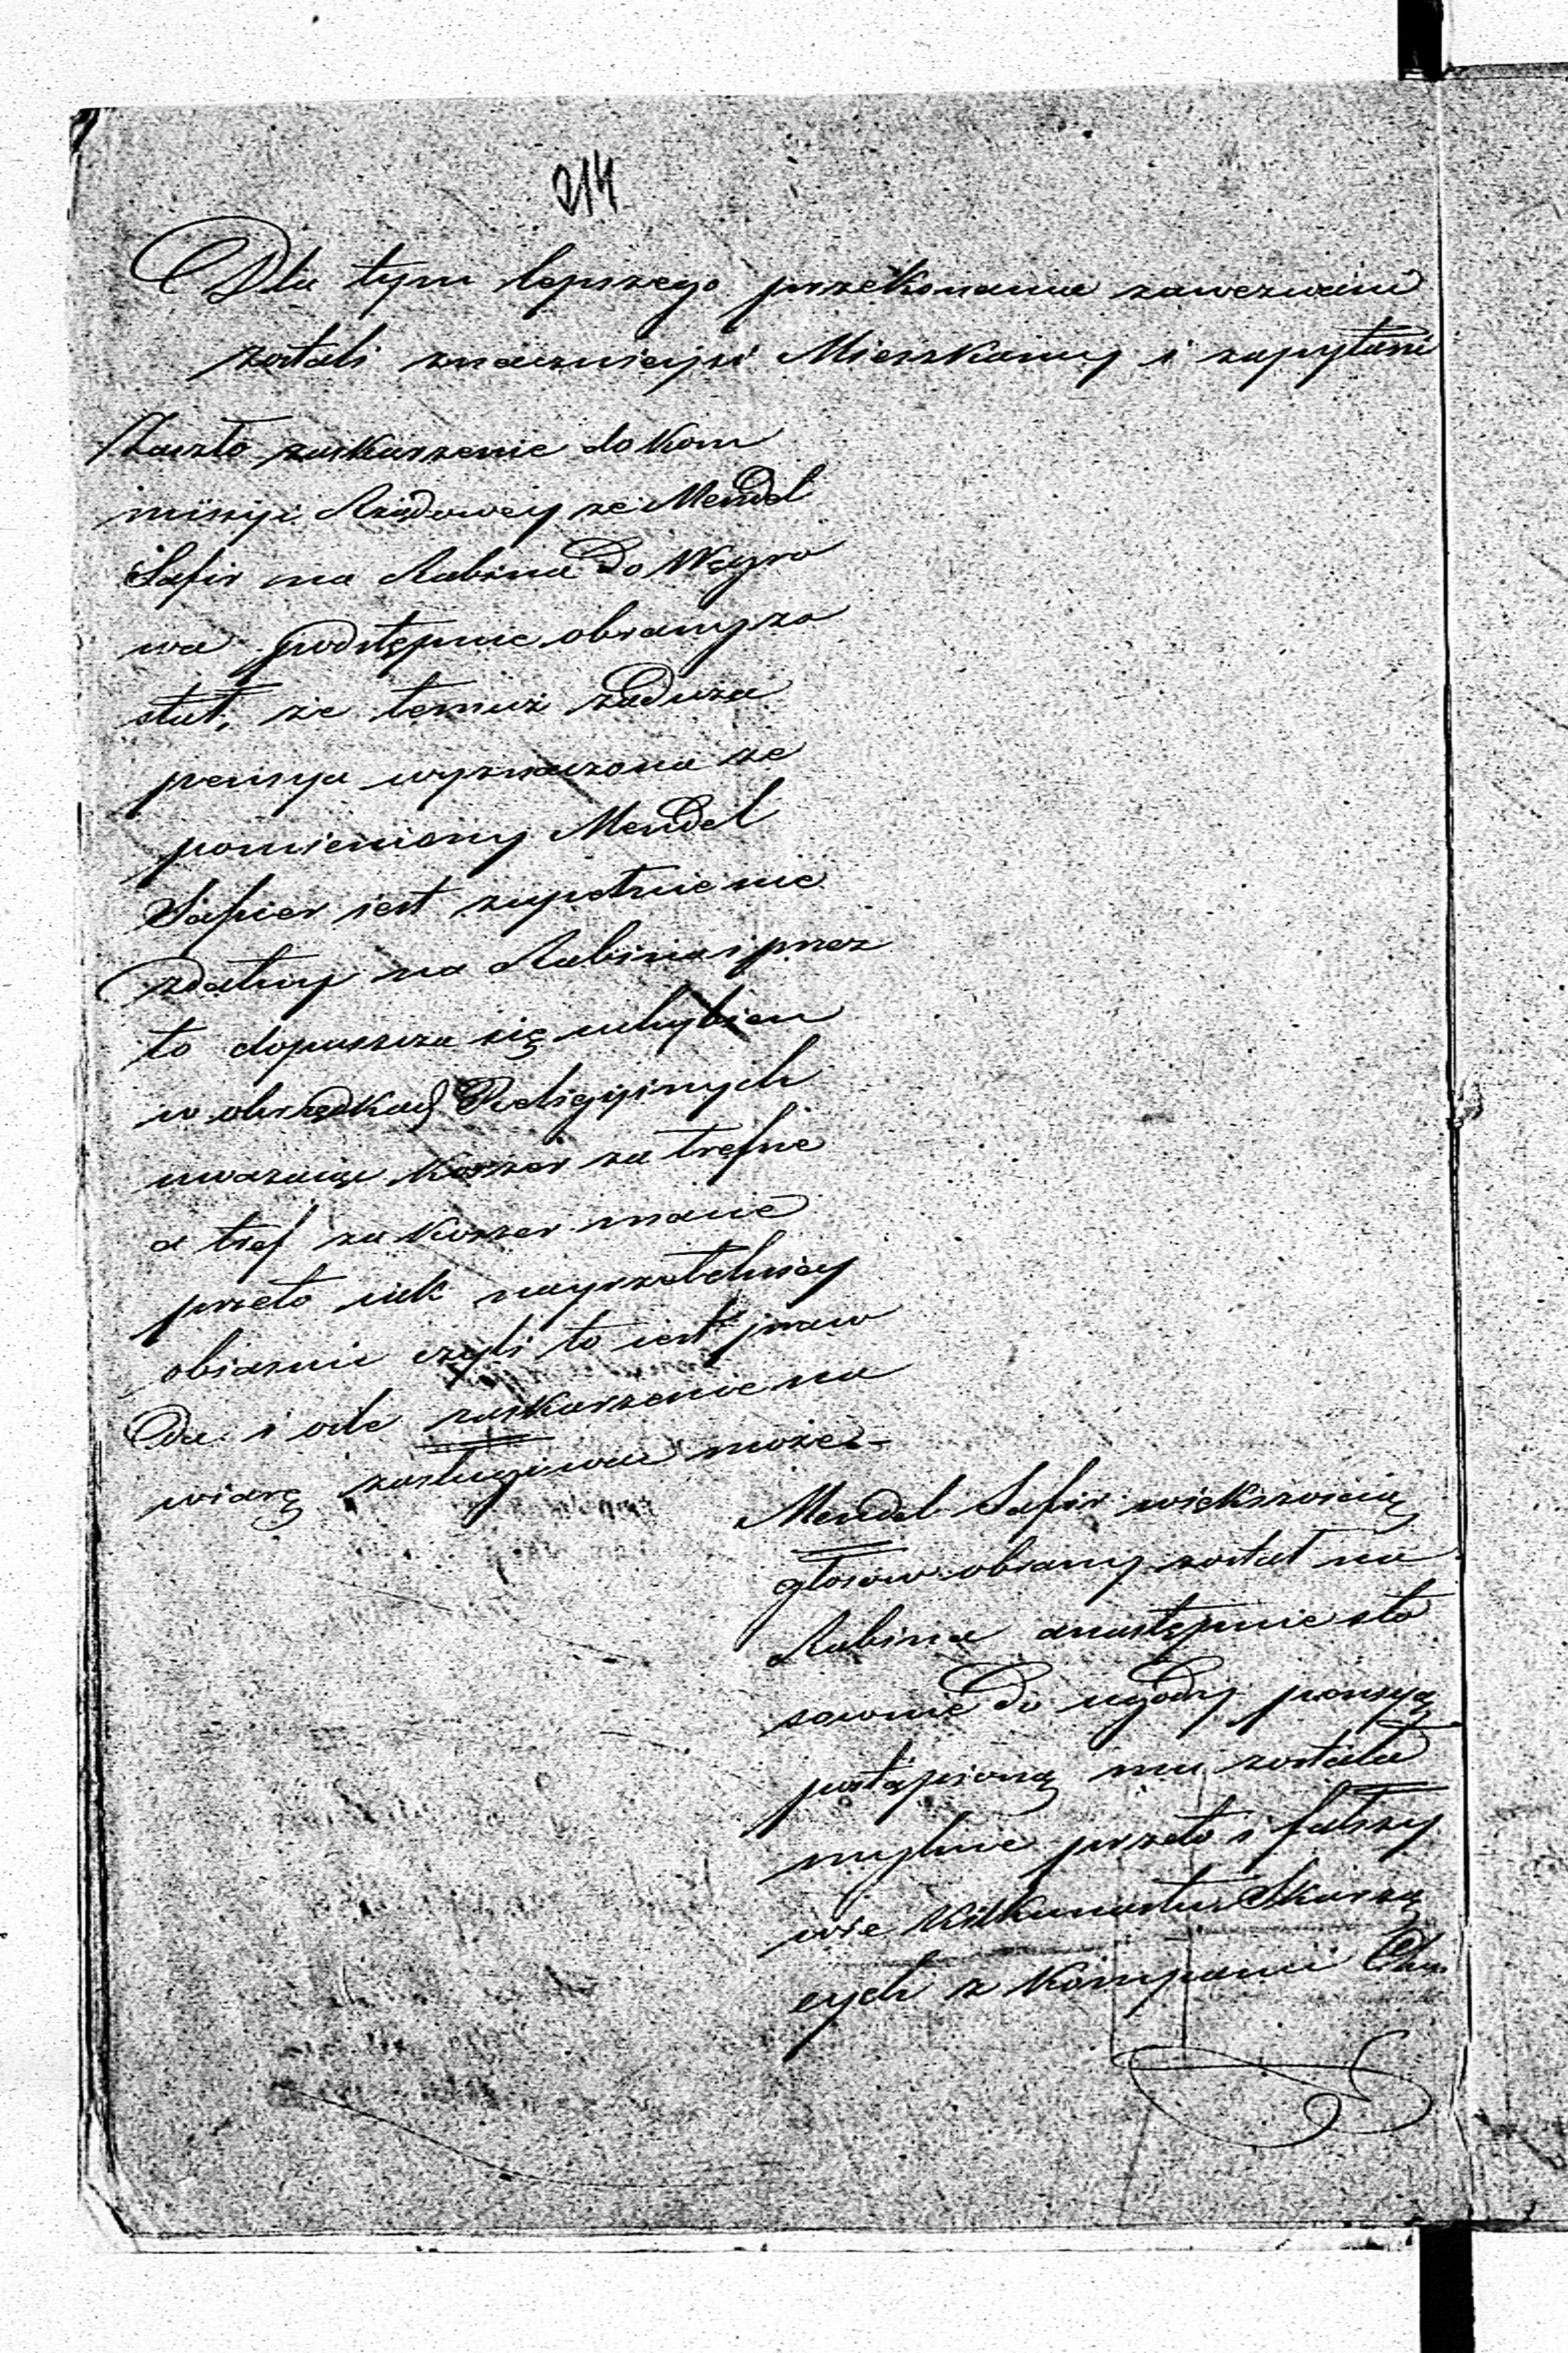 214
Dla tym lepszego przekonania zawezwani
zostali znacznieysi Mieszkańcy i zapytani
Zaszło zaskarzenie do Kom
missyi Rządowey ze Mendel
Safir na Rabina do Węgro
wa podstępnie obrany zo
stał, ze temuż zaduża
pensya wyznaczona ze
pomieniony Mendel
Safier iest zupełnie nie
zdatny na Rabina i przez
to dopuszcza się uchybien
w obrządkach Religijnych
uwazaiąc Koszer za trefne
a tref za Koszer macie
przeto iak nayrzetelniey
obiasnic czyli to iest praw
da i ile zaskarzenie na
wiarę zasługiwac może.-
Mendel Safir większoscią
głosow obrany został na
Rabina a następnie sto
sownie do ugody pensyą
postąpioną mu została
mylnie przeto i fałszy
wie Kilkunastu Skarżą
cych z Kompanii